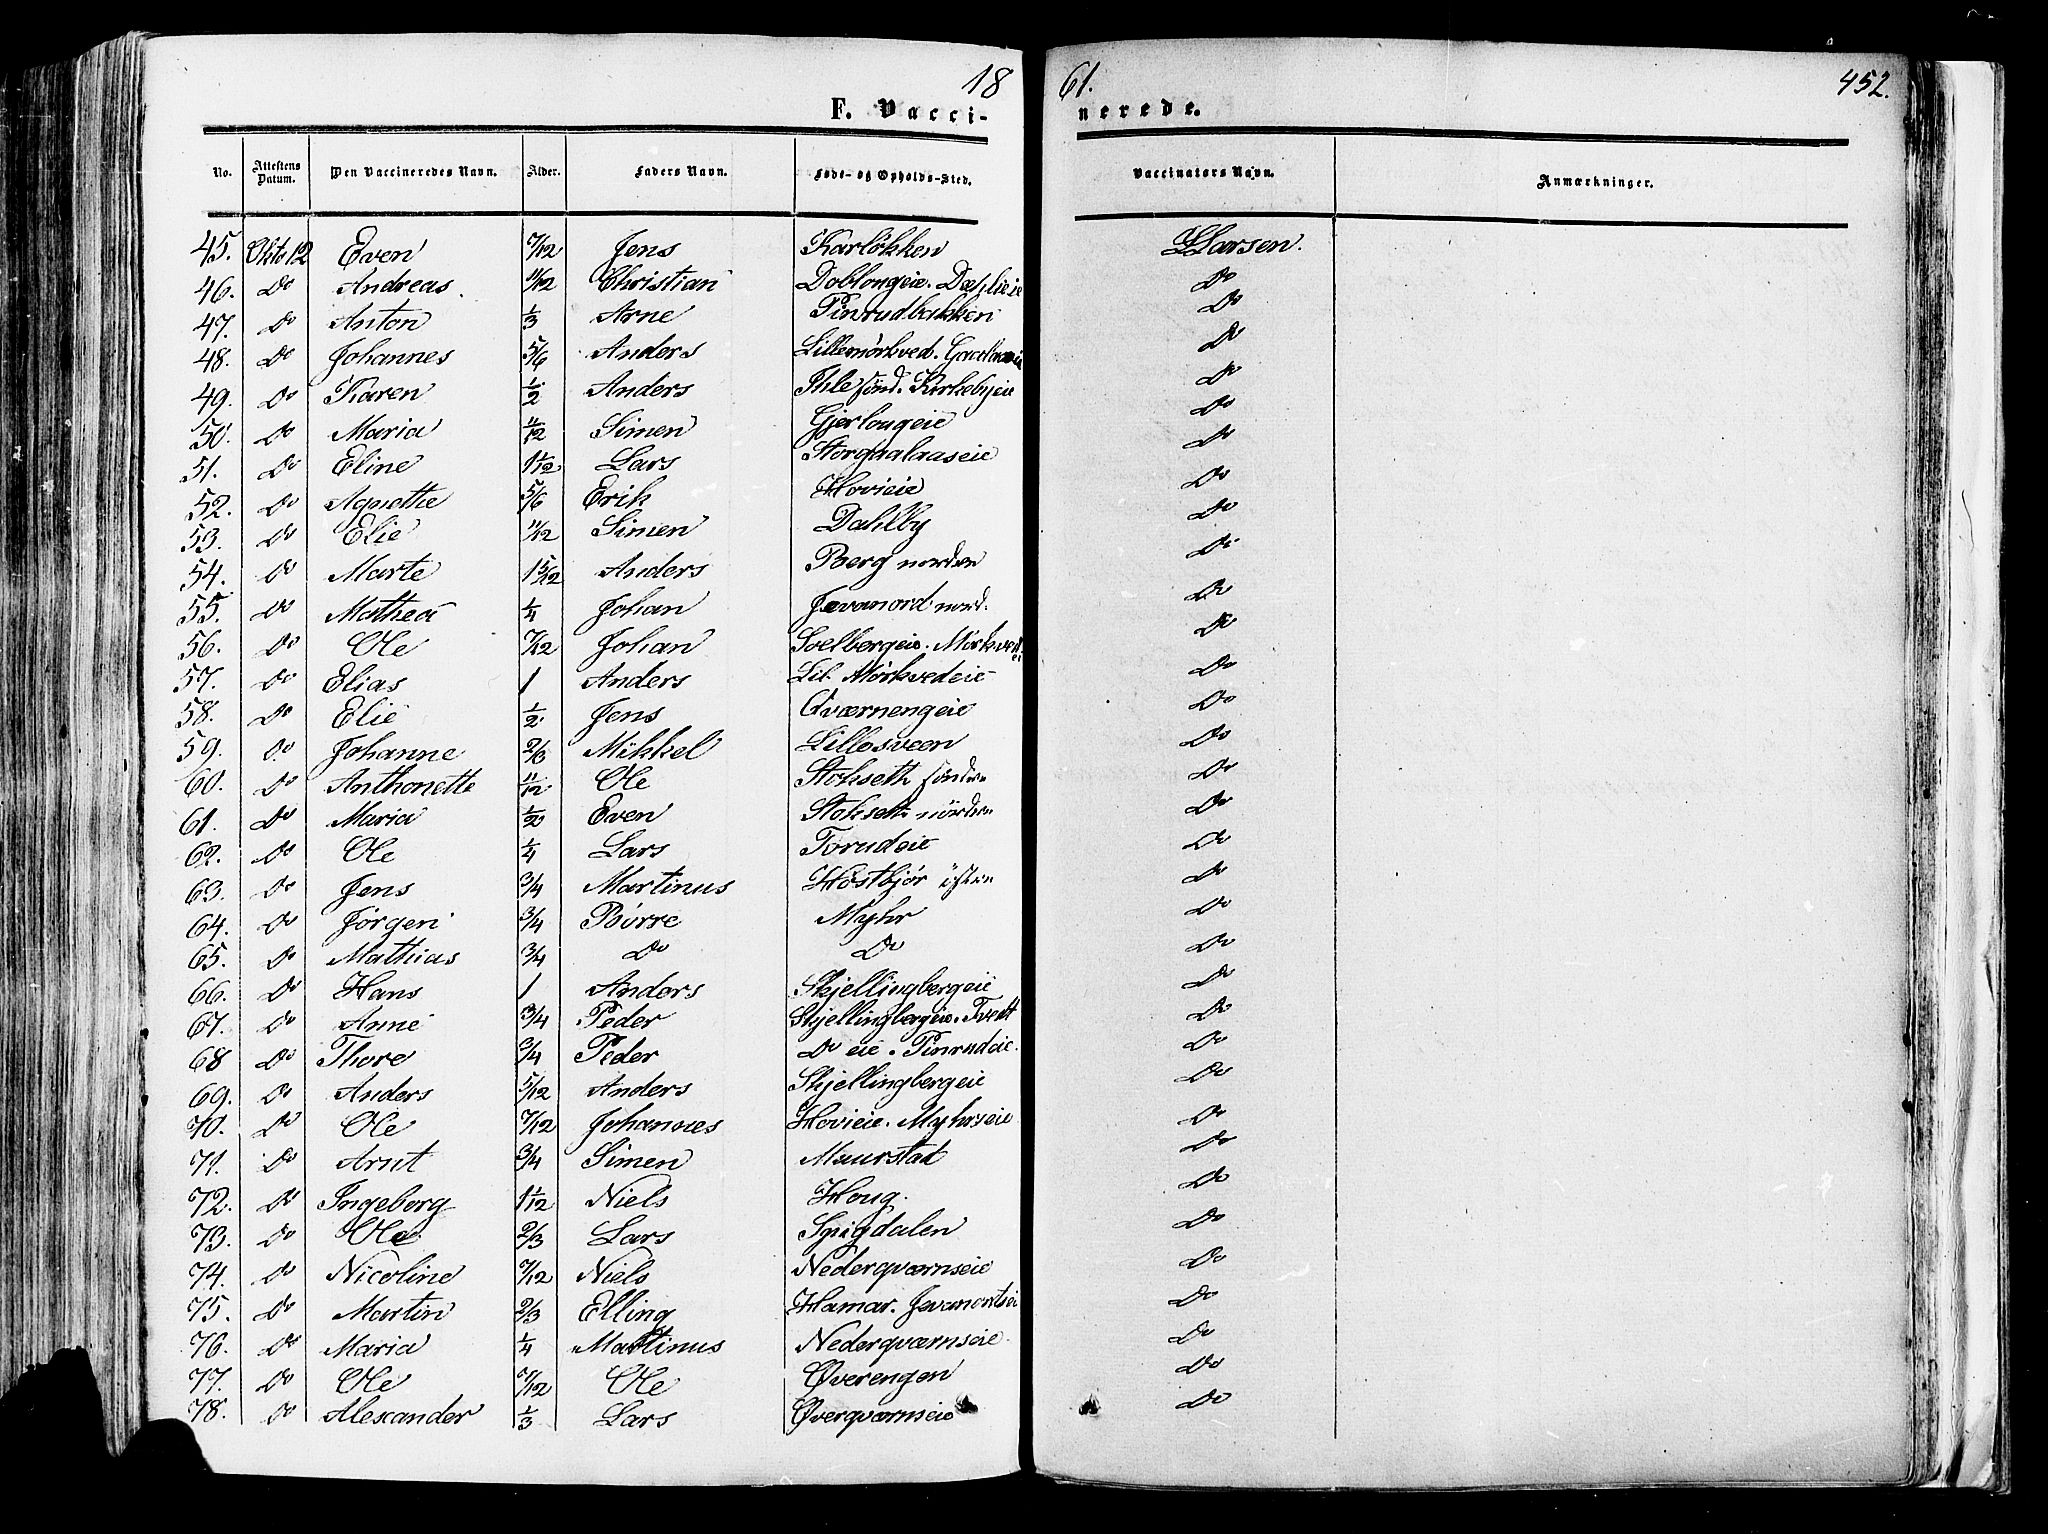 18 61. 452.
F. Vaccinerede.
No. Attestens Datum. Den Vaccineredes Navn. Alder. Faders Navn. Føde- og Opholds-Sted. Vaccinators Navn. Anmærkninger.
45. Okto 12 Even 7/12 Jens Karløkken LLarsen.
46. Do Andreas 11/12 Christian Doblougeie. Do
47. Do Anton 1/3 Arne Pinrudbakken Do
48. Do Johannes 5/6 Anders Lillemørkved. Do
49. Do Karen 1/2 Anders Ihle sönd. Kirkebyeie Do
50. Do Maria 11/12 Simen Gjerlougeie Do
51. Do Eline 1 1/12 Lars Do
52. Do Agnethe 5/6 Erik Hovieie Do
53. Do Elie 11/12 Simen Dahlby Do
54. Do Marte 1 5/12 Anders Berg nordre Do
55. Do Mathea 1/4 Johan Jevanord nord. Do
56. Do Ole 7/12 Johan Solbergeie. Mørkvedei Do
57. Do Elias 1 Anders Lil. Mørkvedeie Do
58. Do Elie 1/2 Jens Qværnengeie Do
59. Do Johanne 2/3 Mikkel Lillesveen Do
60. Do Anthonette 11/12 Ole Stokseth söndre Do
61. Do Maria 1/2 Even Stokseth nordre Do
62. Do Ole 1/4 Lars Torudeie Do
63. Do Jens 3/4 Martinus Høstbjør östre Do
64. Do Jørgen 3/4 Børre Myhr Do
65. Do Mathias 3/4 Do Do Do
66. Do Hans 1 Anders Skjellingbergeie Do
67. Do Anne 3/4 Peder Skjellingbergeie. Tvett Do
68 Do Thore 3/4 Peder Do eie. Pinrudeie. Do
69. Do Anders 5/12 Anders Skjellingbergeie Do
70. Do Ole 7/12 Johannes Hovieie. Myhrseie Do
71. Do Arnt 3/4 Simen Maurstad Do
72. Do Ingeborg 1 1/12 Niels Houg. Do
73. Do Ole 2/3 Lars Spigdalen Do
74. Do Nicoline 7/12 Niels Nederqværnseie Do
75. Do Martin 2/3 Elling Hamar. Do
76. Do Maria 1/4 Martinus Nederqværnseie Do
77. Do Ole 7/12 Ole Øverengen Do
78. Do Alexander 1/3 Lars Øverqværnseie Do